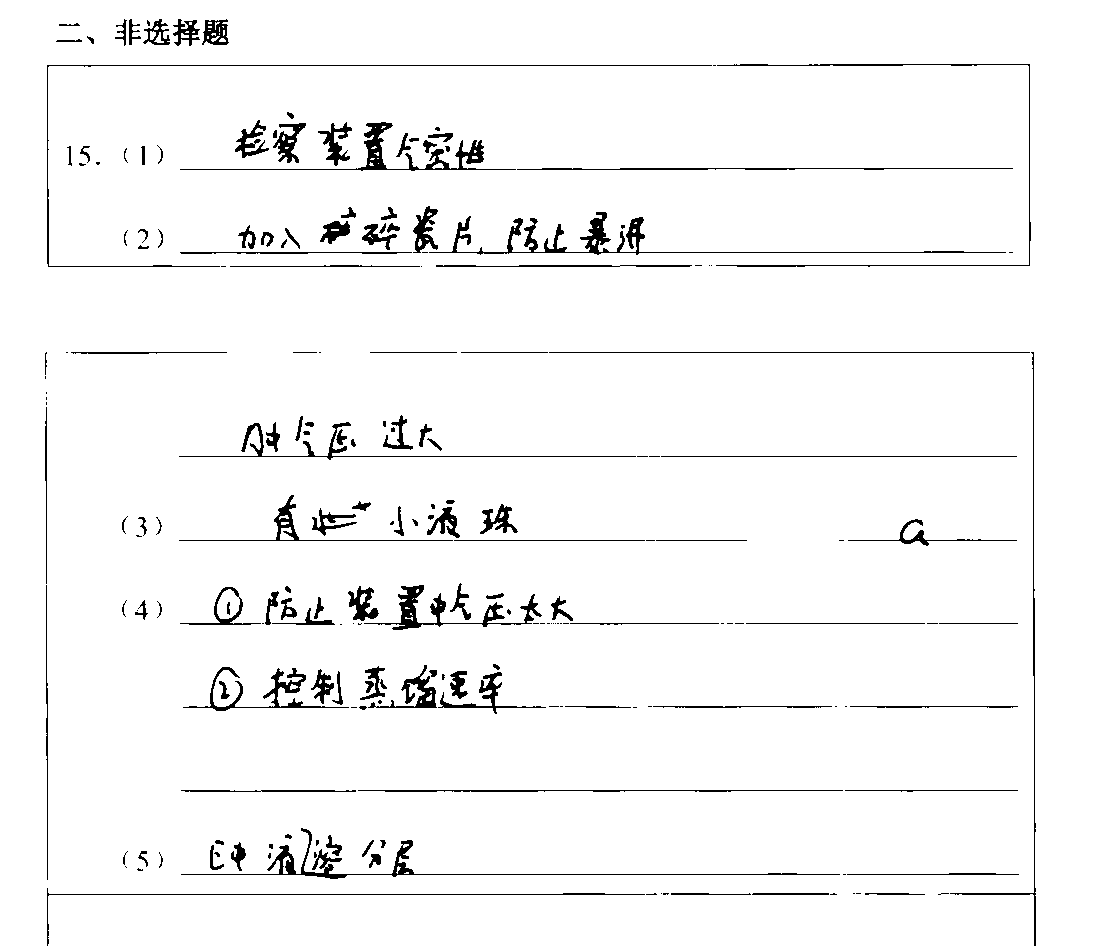 二、非选择题
15.(1) 检察装置气密性
(2) 加入碎瓷片,防止暴沸
A中气压过大
(3) 有 小液珠 a
(4) ①防止装置中气压太大
②控制蒸馏速率
(5) E中液 分层